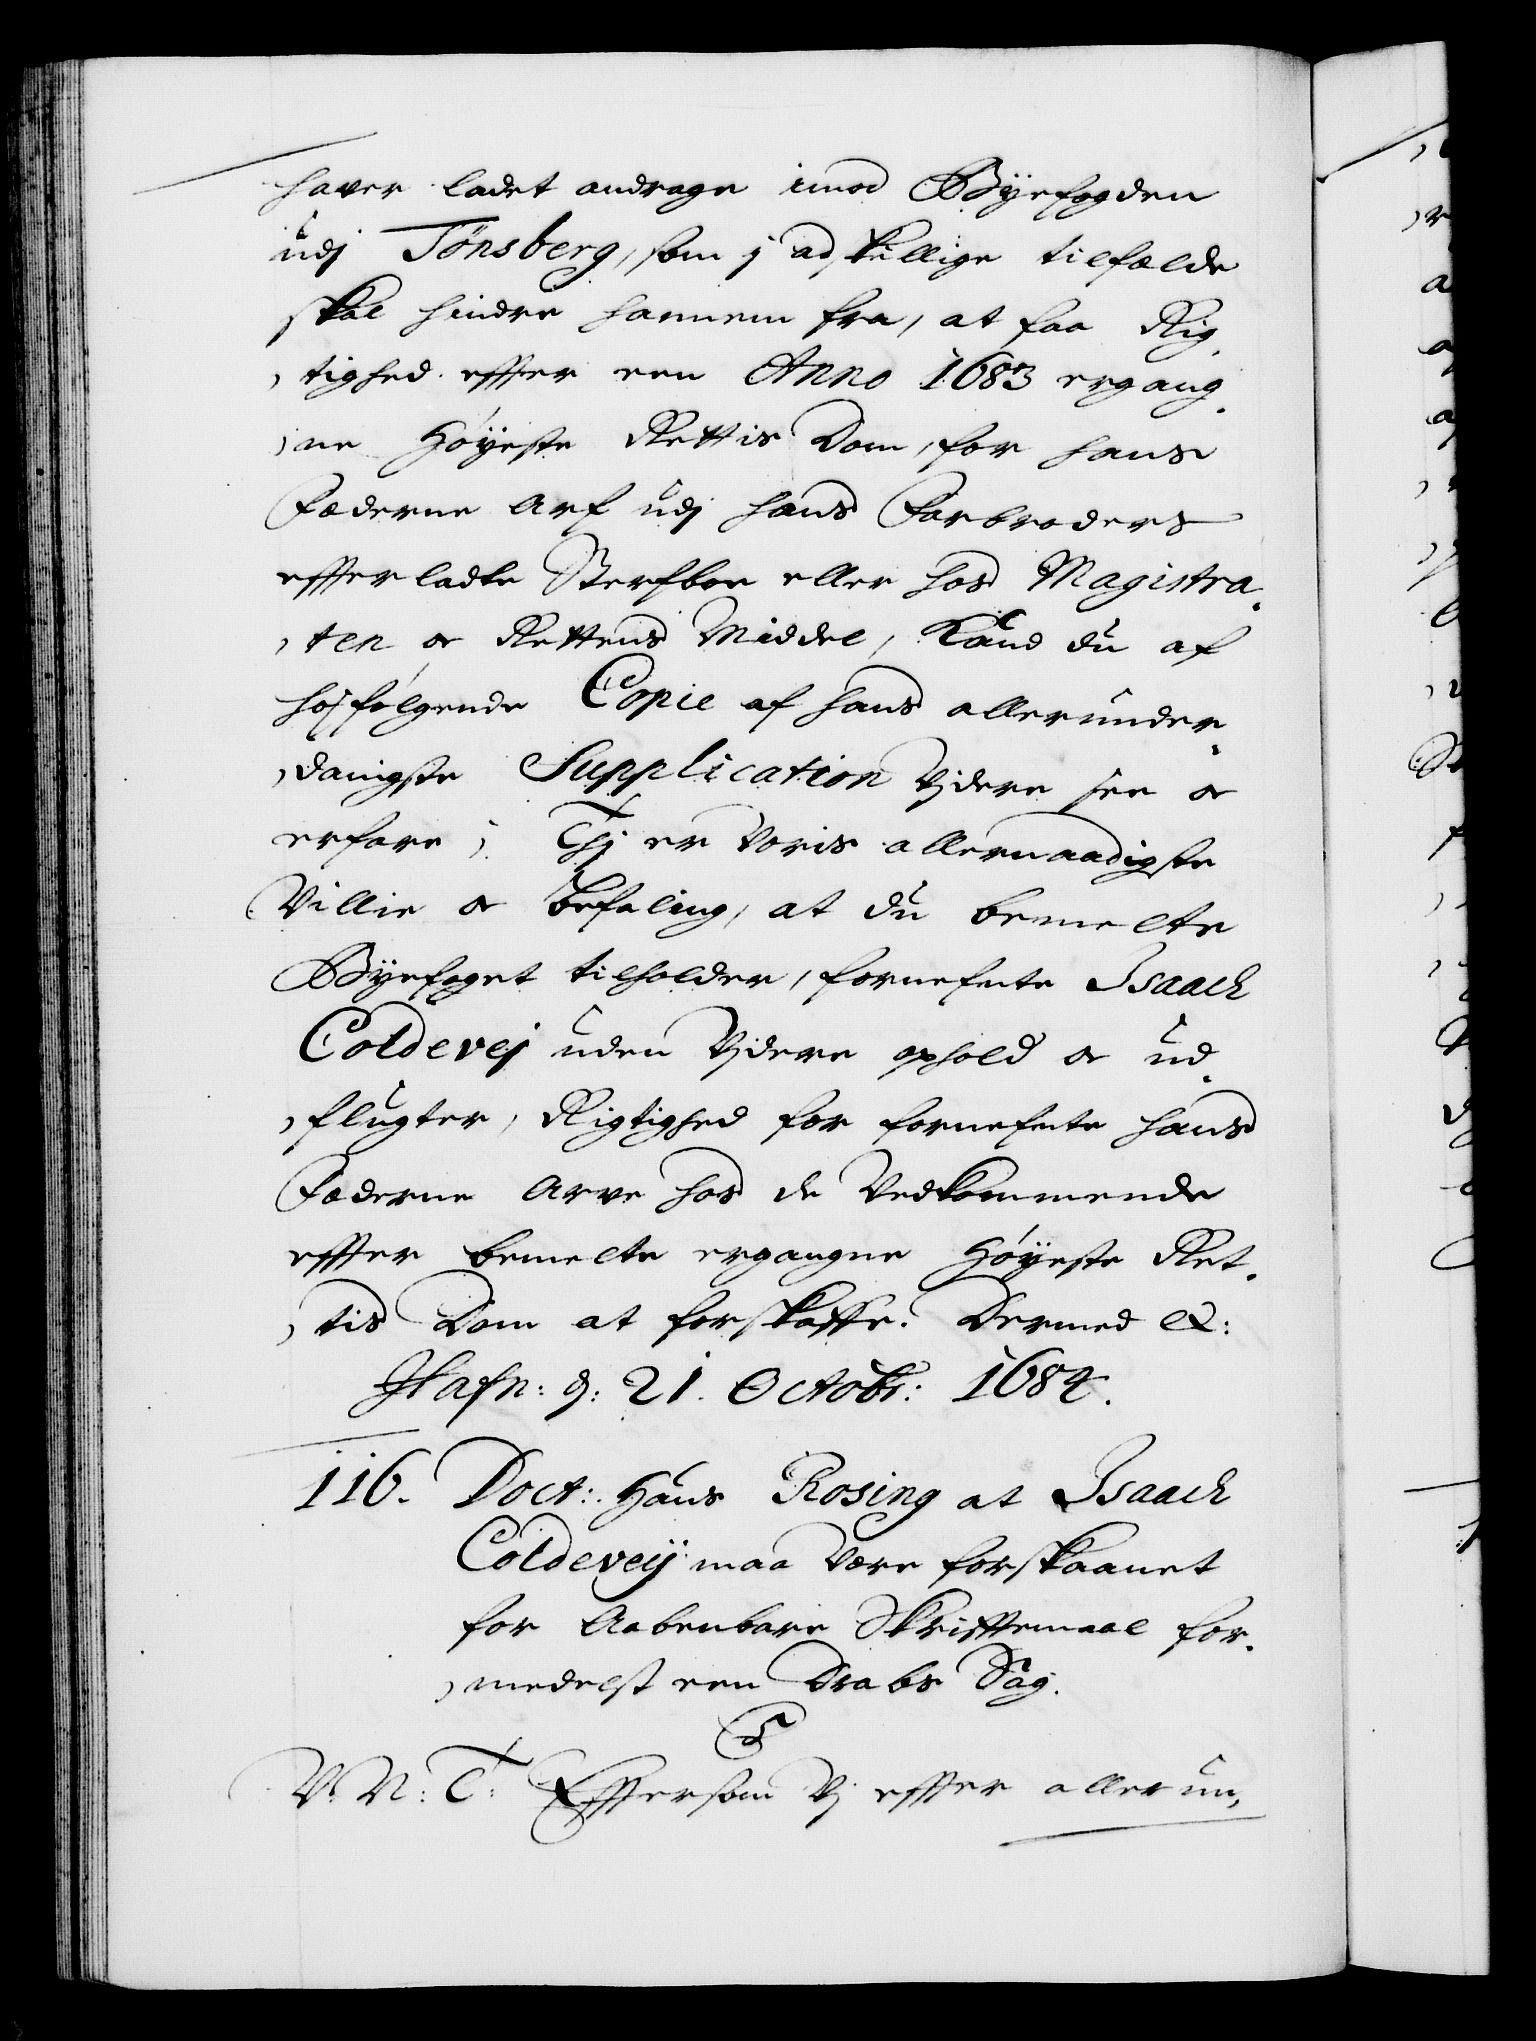 hafver ladet andrage imod Byefogden
udj Tönsberg, som j adskillige tilfælde
skal hindre hannem fra, at faa Rig,
,tighed effter een Anno 1683 ergang,
,ne Høyeste Rettis Dom, for hans
Fæderne Arf udj hans Farbroders
effterladte Sterfboe eller hos Magistra,
,ten oc Rettens Middel, Kand du af
hosfølgende Copie af hans allerunder,
,danigste Supplication Vjdere see oc
erfare; Thj er Voris allernaadigste
Villie oc befaling, at du bemelte
Byefoget tilholder, fornefnte Isaach
Coldevej uden Vjdere ophold oc ud,
,flugter, Rigtighed for fornefnte hans
Fæderne Arve hos de Vedkommende
effter bemelte ergangne Høyeste Ret,
,tis Dom at forskaffe. Dermed &:
Hafn: d: 21. Octobr: 1684.
116. Doct: Hans Rosing at Isaach
Coldeveij maa Være forskaanet
for Aabenbare Skrifftemaal for,
,medelst een Drabs Sag.
C5
V. N: T: Effersom Vj effter allerun,